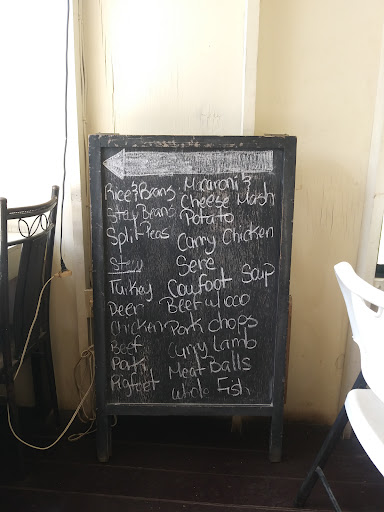 Rice & Beans
Stew Beans
Split Peas
Stew
Turkey
Deer
Chicken
Beef
Pork
Pigfeet
Macaroni &
Cheese Mash
Potato
Curry Chicken
Sere
Cowfoot Soup
Beef w/oco
Pork chops
Curry Lamb
Meat Balls
whole Fish